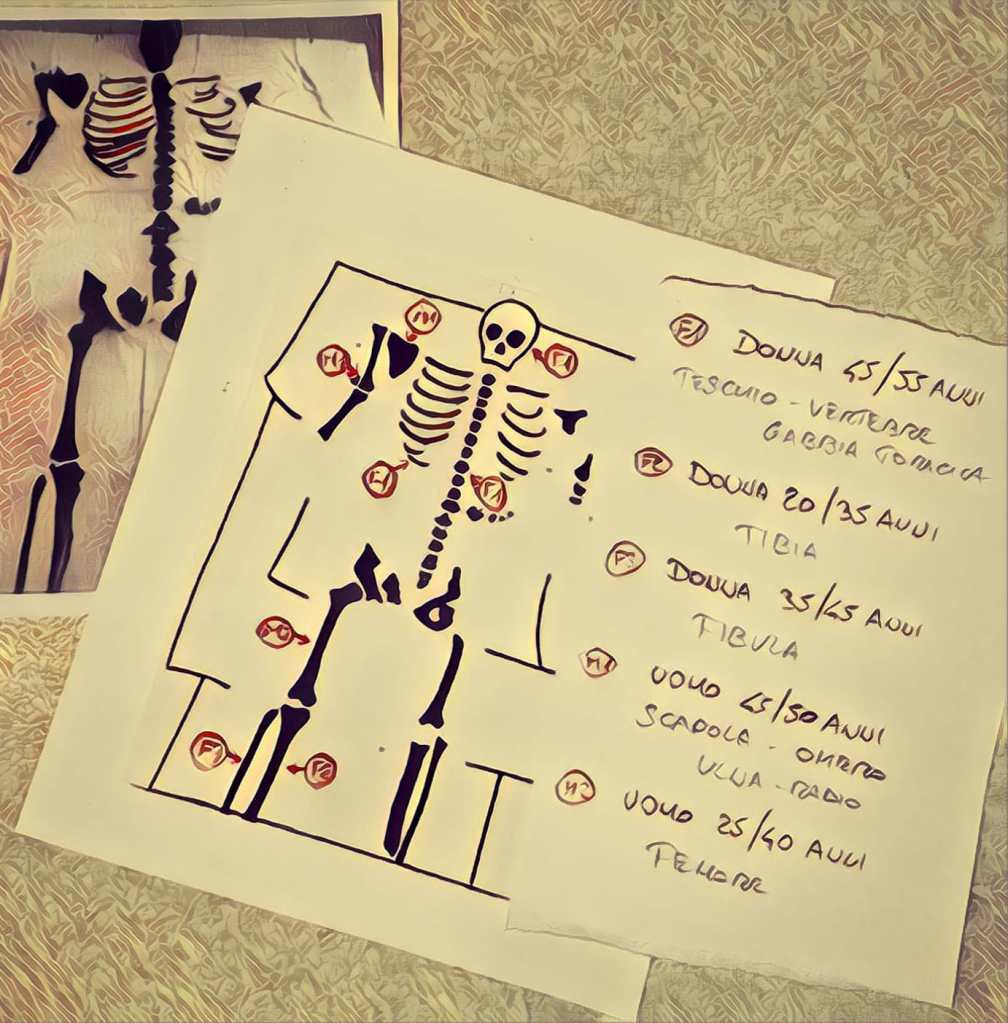 M1
M1
F1
F1
F1
F2
F1 DONNA 45/55 ANNI
TESCHIO - VERTEBRE
GABBIA TORACICA
F2 DONNA 20/35 ANNI
TIBIA
F3 DONNA 35/45 ANNI
FIBULA
M1 UOMO 45/50 ANNI
SCAPOLA - OMERO
ULNA - RADIO
M2 UOMO 25/40 ANNI
FEMORE